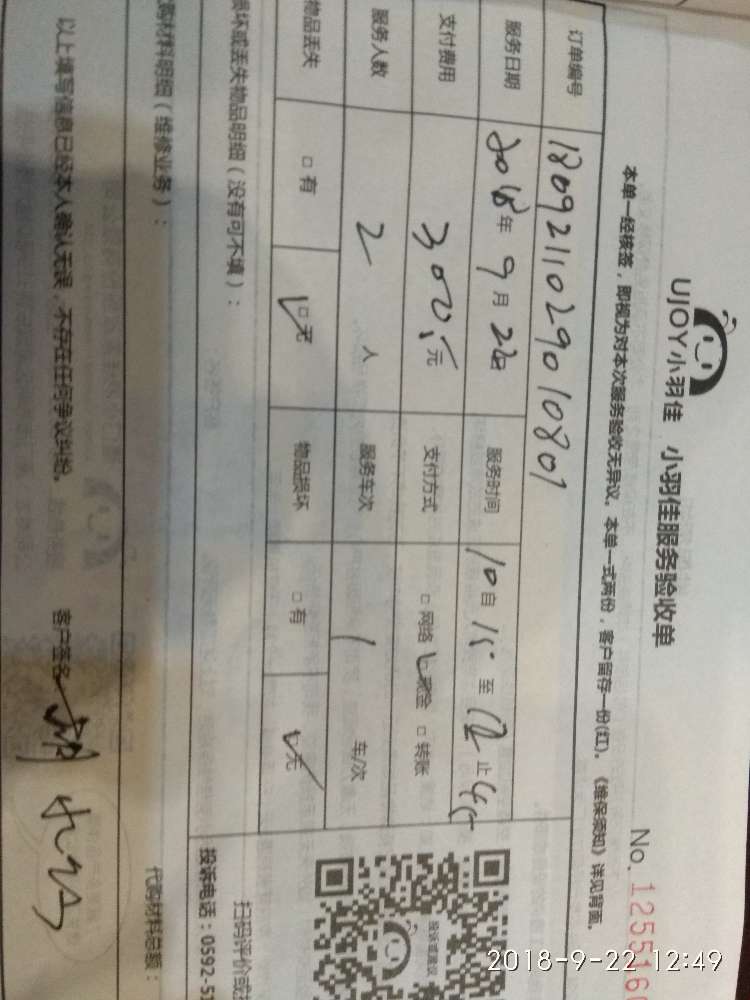 UJOY小羽佳 小羽佳服务验收单
No. 125516
本单一经核签，即视为对本次服务验收无异议。本单一式两份，客户留存一份(红)。《维保须知》详见背面。
订单编号 1809211029010801
服务日期 2018年9月22日 服务时间 10自15至12止45
支付费用 300元 支付方式 □网络 □现金 □转账
服务人数 2人 服务车次 1 车/次
物品丢失 □有 □无 物品损坏 □有 □无
损坏或丢失物品明细（没有可不填）：
扫码评价或
投诉电话：0592-5
投诉或建议
购材料明细（维修业务）：
代购材料总额：
以上填写信息已经本人确认无误，不存在任何争议纠纷。 客户签名
2018-9-22 12:49